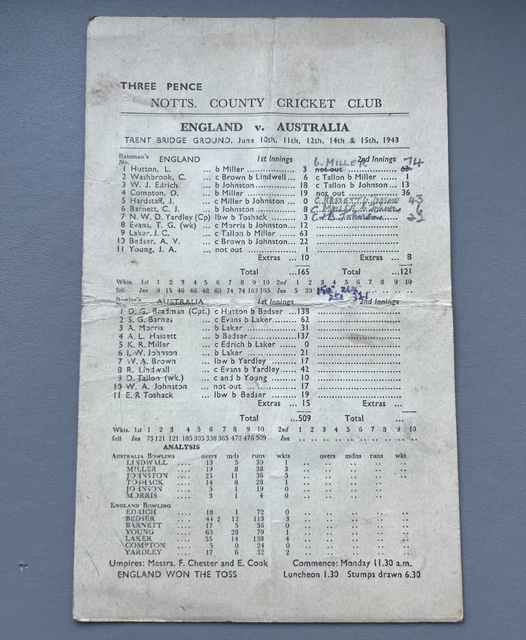 THREE PENCE
NOTTS. COUNTY CRICKET CLUB
ENGLAND v. AUSTRALIA
TRENT BRIDGE GROUND, June 10th, 11th, 12th, 14th & 15th, 1943
Batsman's No. ENGLAND 1st Innings 2nd Innings
b. MILLER 74
1 Hutton, L. ... b Miller ... 3 not out ... 63
2 Washbrook, C. ... c Brown b Lindwall ... 6 c Tallon b Miller ... 1
3 W. J. Edrich ... b Johnston ... 18 c Tallon b Johnson ... 13
4 Compton, D. ... b Miller ... 19 not out ... 36
5 Hardstaff, J. ... c Miller b Johnston ... 0 43
6 Barnett, C. J. ... b Johnston ... 8
7 N. W. D. Yardley (Cp) lbw b Toshack ... 3
8 Evans, T. G. (wk) ... c Morris b Johnston ... 12
9 Laker, J. C. ... c Tallon b Miller ... 63
10 Bedser, A. V. ... c Brown b Johnston ... 22
11 Young, J. A. ... not out ... 1
Extras ... 10 Extras ... 8
Total ...165 Total ...121
Wkts. 1 2 3 4 5 6 7 8 9 10 2nd 1 2 3 4 5 6 7 8 9 10
fell Inn 9 15 46 46 48 60 74 74 163 165 Inn 5 39
Bowler's No. AUSTRALIA 1st Innings 2nd Innings
1 D. G. Bradman (Cpt.) c Hutton b Bedser ...138
2 S. G. Barnes ... c Evans b Laker ... 62
3 A. Morris ... b Laker ... 31
4 A. L. Hassett ... b Bedser ...137
5 K. R. Miller ... c Edrich b Laker ... 0
6 I. W. Johnson ... b Laker ... 21
7 W. A. Brown ... lbw b Yardley ... 17
8 R. Lindwall ... c Evans b Yardley ... 42
9 D. Tallon (wk.) ... c and b Young ... 10
10 W. A. Johnston ... not out ... 17
11 E. R Toshack ... lbw b Bedser ... 19
Extras ... 15 Extras ...
Total ...509 Total ...
Wkts. 1 2 3 4 5 6 7 8 9 10 2nd 1 2 3 4 5 6 7 8 9 10
fell Inn 73 121 121 185 305 338 365 472 476 509 Inn
ANALYSIS
AUSTRALIA BOWLING overs mds runs wkts overs mdns runs wkt
LINDWALL ... 13 5 30 1
MILLER ... 19 8 38 3
JOHNSTON ... 25 11 36 5
TOSHACK ... 14 8 28 1
JOHNSON ... 5 1 19 0
MORRIS ... 3 1 4 0
ENGLAND BOWLING
EDRICH ... 18 1 72 0
BEDSER ... 44 2 12 113 3
BARNETT ... 17 5 36 0
YOUNG ... 60 28 79 1
LAKER ... 55 14 138 4
COMPTON ... 5 6 24 0
YARDLEY ... 17 6 32 2
Umpires: Messrs. F. Chester and E. Cook Commence: Monday 11.30 a.m.
ENGLAND WON THE TOSS Luncheon 1.30 Stumps drawn 6.30